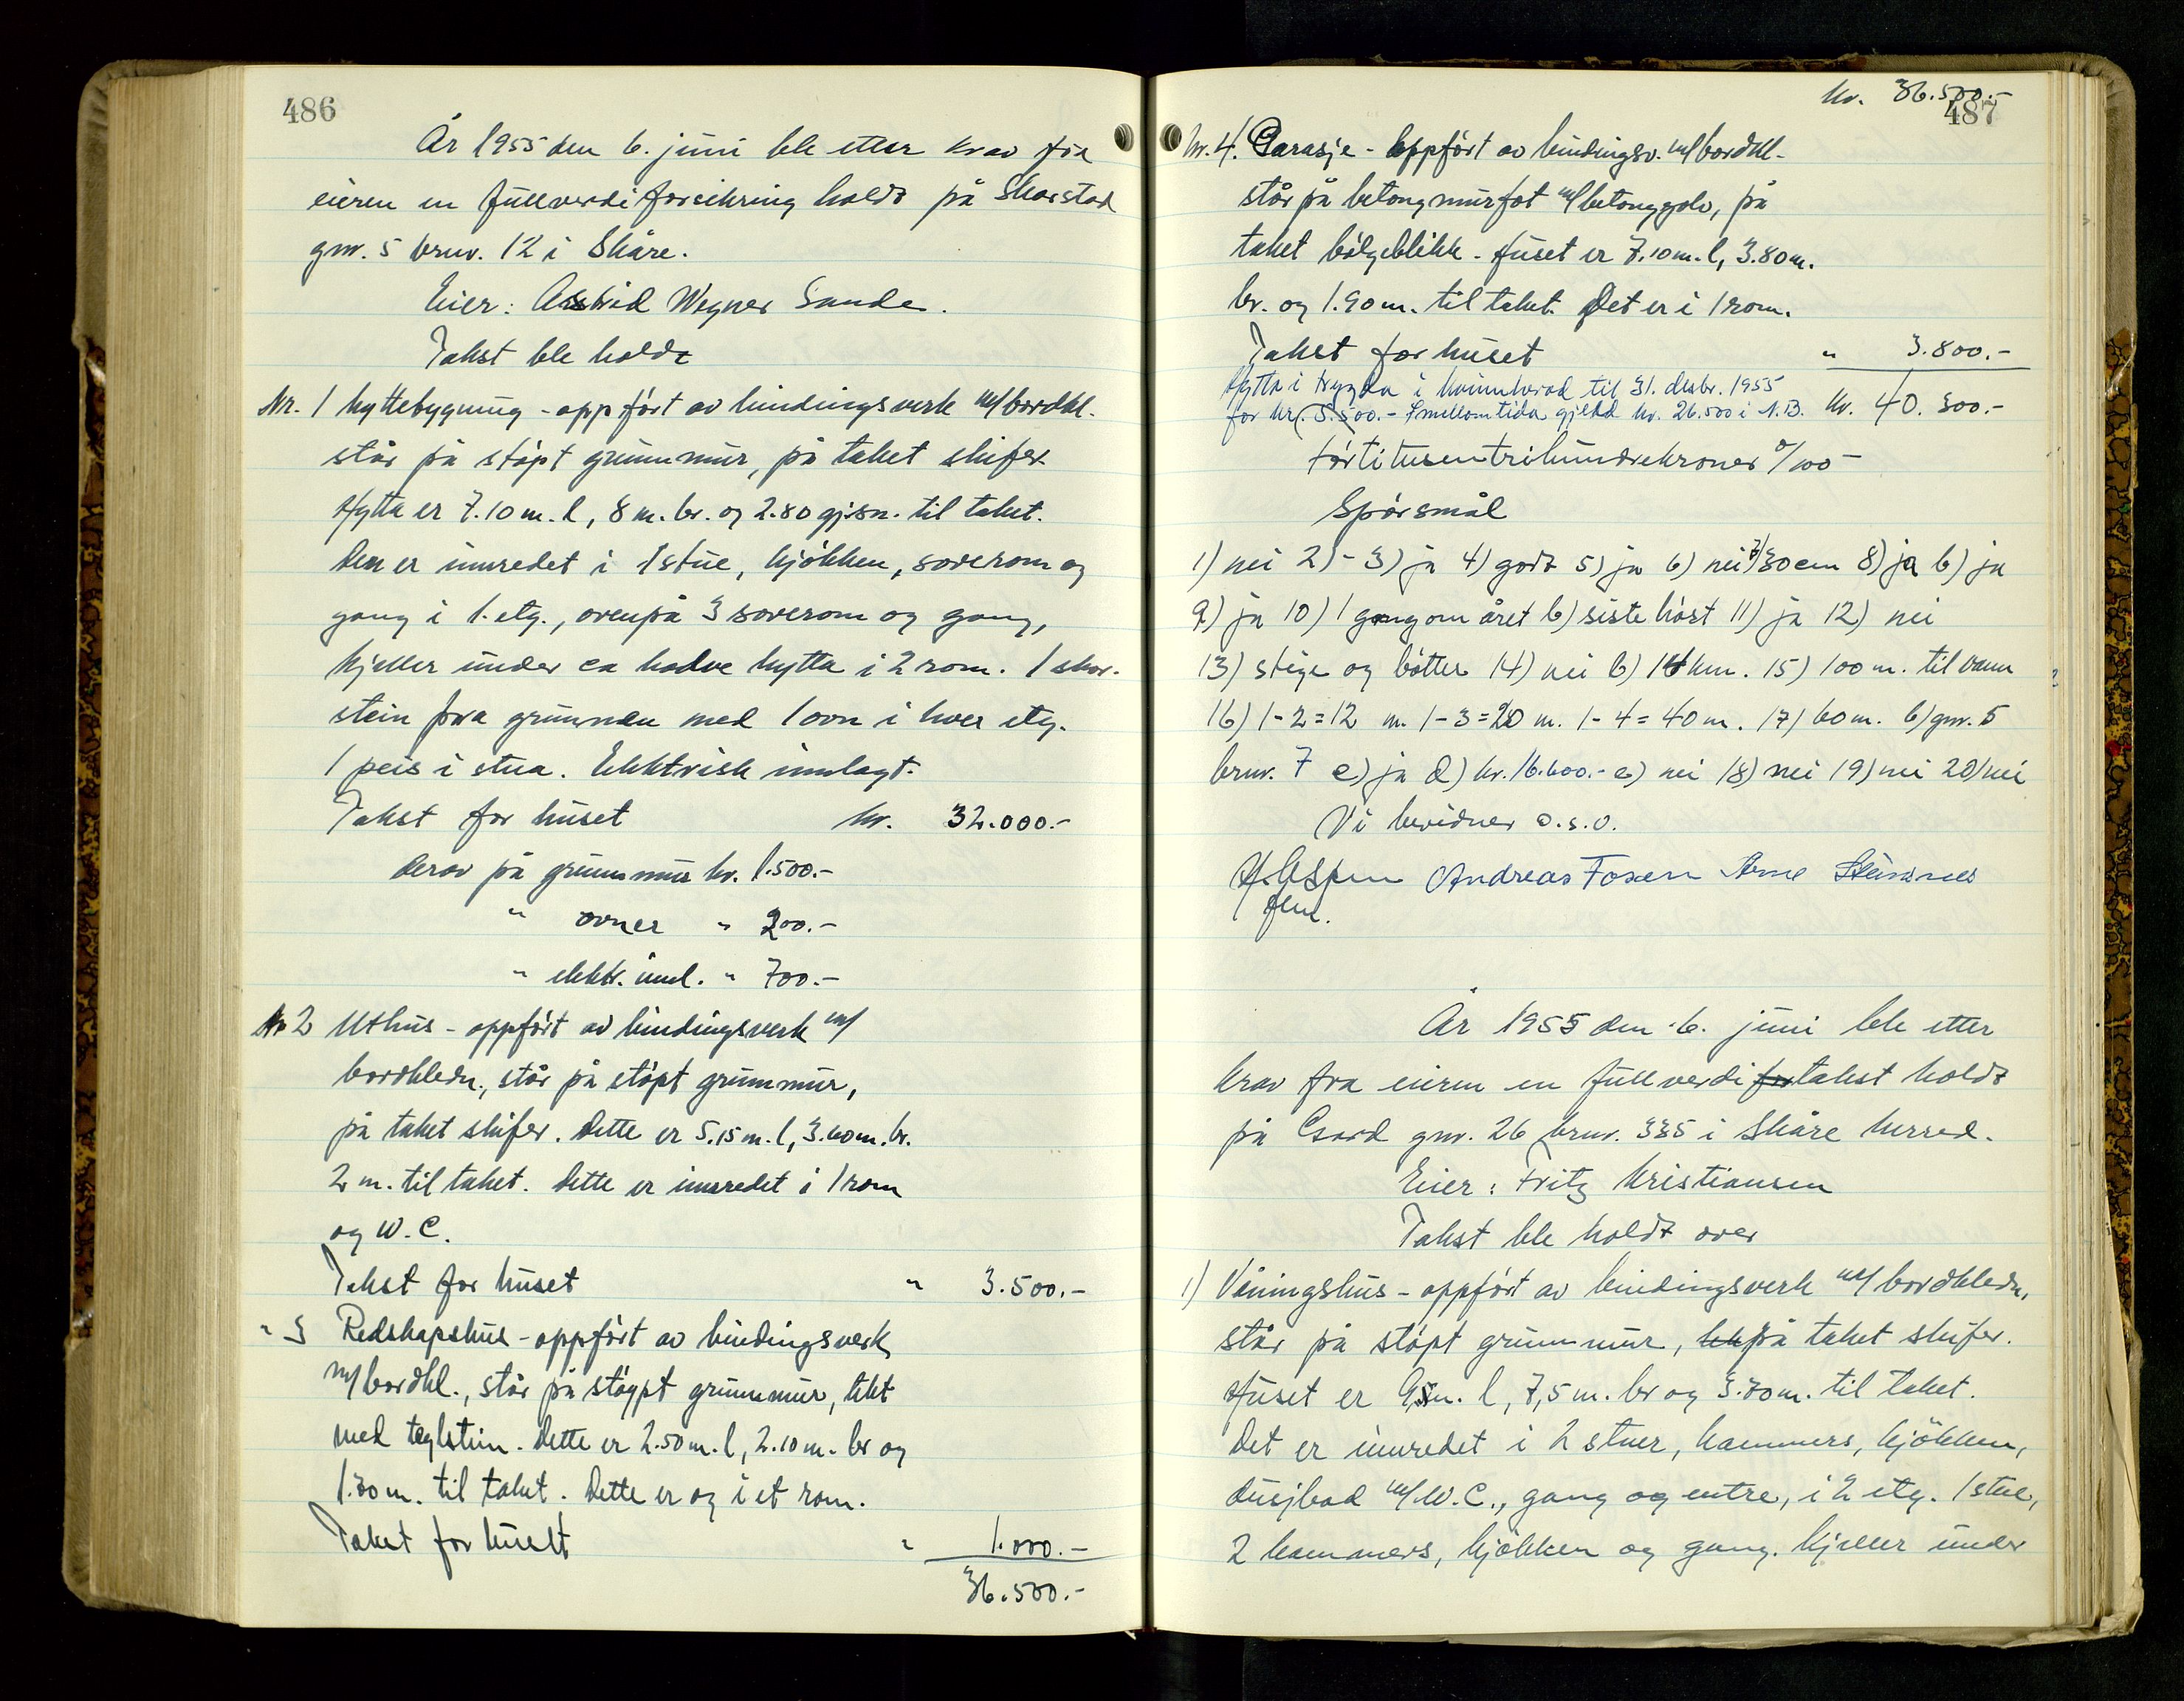 486
År 1955 den 6. juni ble etter krav fra
eieren en fullverdiforsikring holdt på Skarstad
gnr. 5 brnr. 12 i Skåre.
Eier: Astrid Wegner Sande.
Takst ble holdt
Nr. 1 hyttebygning - oppført av bindingsverk m/bordkl.
står på støpt grunnmur, på taket skifer
Hytta er 7.10 m. l, 8 m. br. og 2.80 gj.sn. til taket.
Den er innredet i 1 stue, kjøkken, soverom og
gang i 1. etg., ovenpå 3 soverom og gang,
kjeller under ca halve hytta i 2 rom. 1 skor-
stein fra grunnen med 1 ovn i hver etg.
1 peis i stua. Elektrisk innlagt.
Takst for huset kr. 32.000.-
derav på grunnmur kr. 1.500.-
" ovner " 200.-
" elektr. innl. " 700.-
Nr 2 Uthus - oppført av bindingsverk m/
bordkledn., står på støpt grunnmur,
på taket skifer. Dette er 5.15 m. l, 3.60 m. br.
2 m. til taket. Dette er innredet i 1 rom
og W.C.
Takst for huset " 3.500.-
" 3 Redskapshus - oppført av bindingsverk
m/bordkl., står på støypt grunnmur, tekt
med teglstein. Dette er 2.50 m. l, 2.10 m. br og
1.80 m. til taket. Dette er og i et rom.
Takst for huset " 1.000.-
36.500.-
kr. 36.500.-
487
Nr. 4. Garasje - oppført av bindingsv. m/bordkl.
står på betongmurfot m/betonggolv, på
taket bølgeblikk. Huset er 7.10 m. l, 3.80 m.
br. og 1.90 m. til taket. Det er i 1 rom.
Takst for huset " 3.800.-
Hytta i trygda i til 31. desbr. 1955
for kr. 5.500.- I mellomtida gjeld kr. 26.500 i N.B. kr. 40.300.-
førtitusentrihundrekroner 0/100 -
Spørsmål
1) nei 2) - 3) ja 4) godt 5) ja 6) nei 7) 30 cm 8) ja b) ja
9) ja 10) 1 gang om året b) siste høst 11) ja 12) nei
13) stige og bøtter 14) nei b) 14 km. 15) 100 m. til vann
16) 1-2=12 m. 1-3=20 m. 1-4=40 m. 17) 60 m. b) gnr. 5
brnr. 7 c) ja d) kr. 16.600.- e) nei 18) nei 19) nei 20) nei
Vi bevidner o.s.v.
H. Espen Andreas Foxen Arne Steinsnes
flm.
År 1955 den 6. juni ble etter
krav fra eieren en fullverdi for takst holdt
på Gard gnr. 26 brnr. 335 i Skåre herred.
Eier: Fritz Kristiansen
Takst ble holdt over
1) Våningshus - oppført av bindingsverk m/bordkledn,
står på støpt grunnmur, tek på taket skifer.
Huset er 9,5 m. l, 7,5 m. br og 3.70 m. til taket.
Det er innredet i 2 stuer, kammers, kjøkken,
dusjbad m/W.C., gang og entre, i 2 etg. 1 stue,
2 kammers, kjøkken og gang. Kjeller under